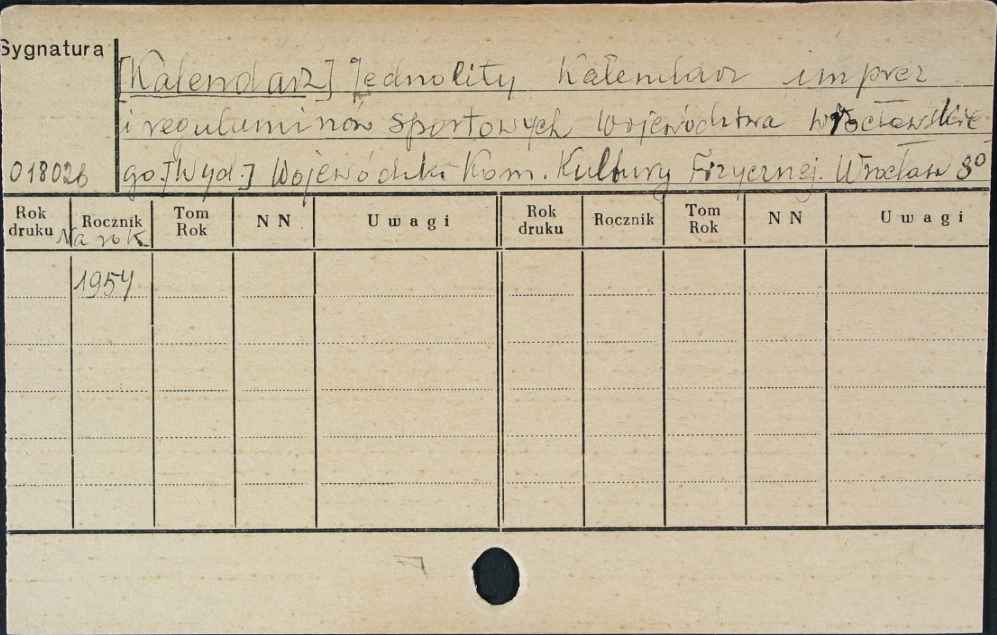 Sygnatura
[Kalendarz] Jednolity Kalendarz imprez
i regulaminów sportowych województwa wrocławskie
018026 go. [Wyd.] Wojewódzki Kom. Kultury Fizycznej. Wrocław 8°
Rok druku Rocznik Tom Rok NN Uwagi Rok druku Rocznik Tom Rok NN Uwagi
Na rok
1954